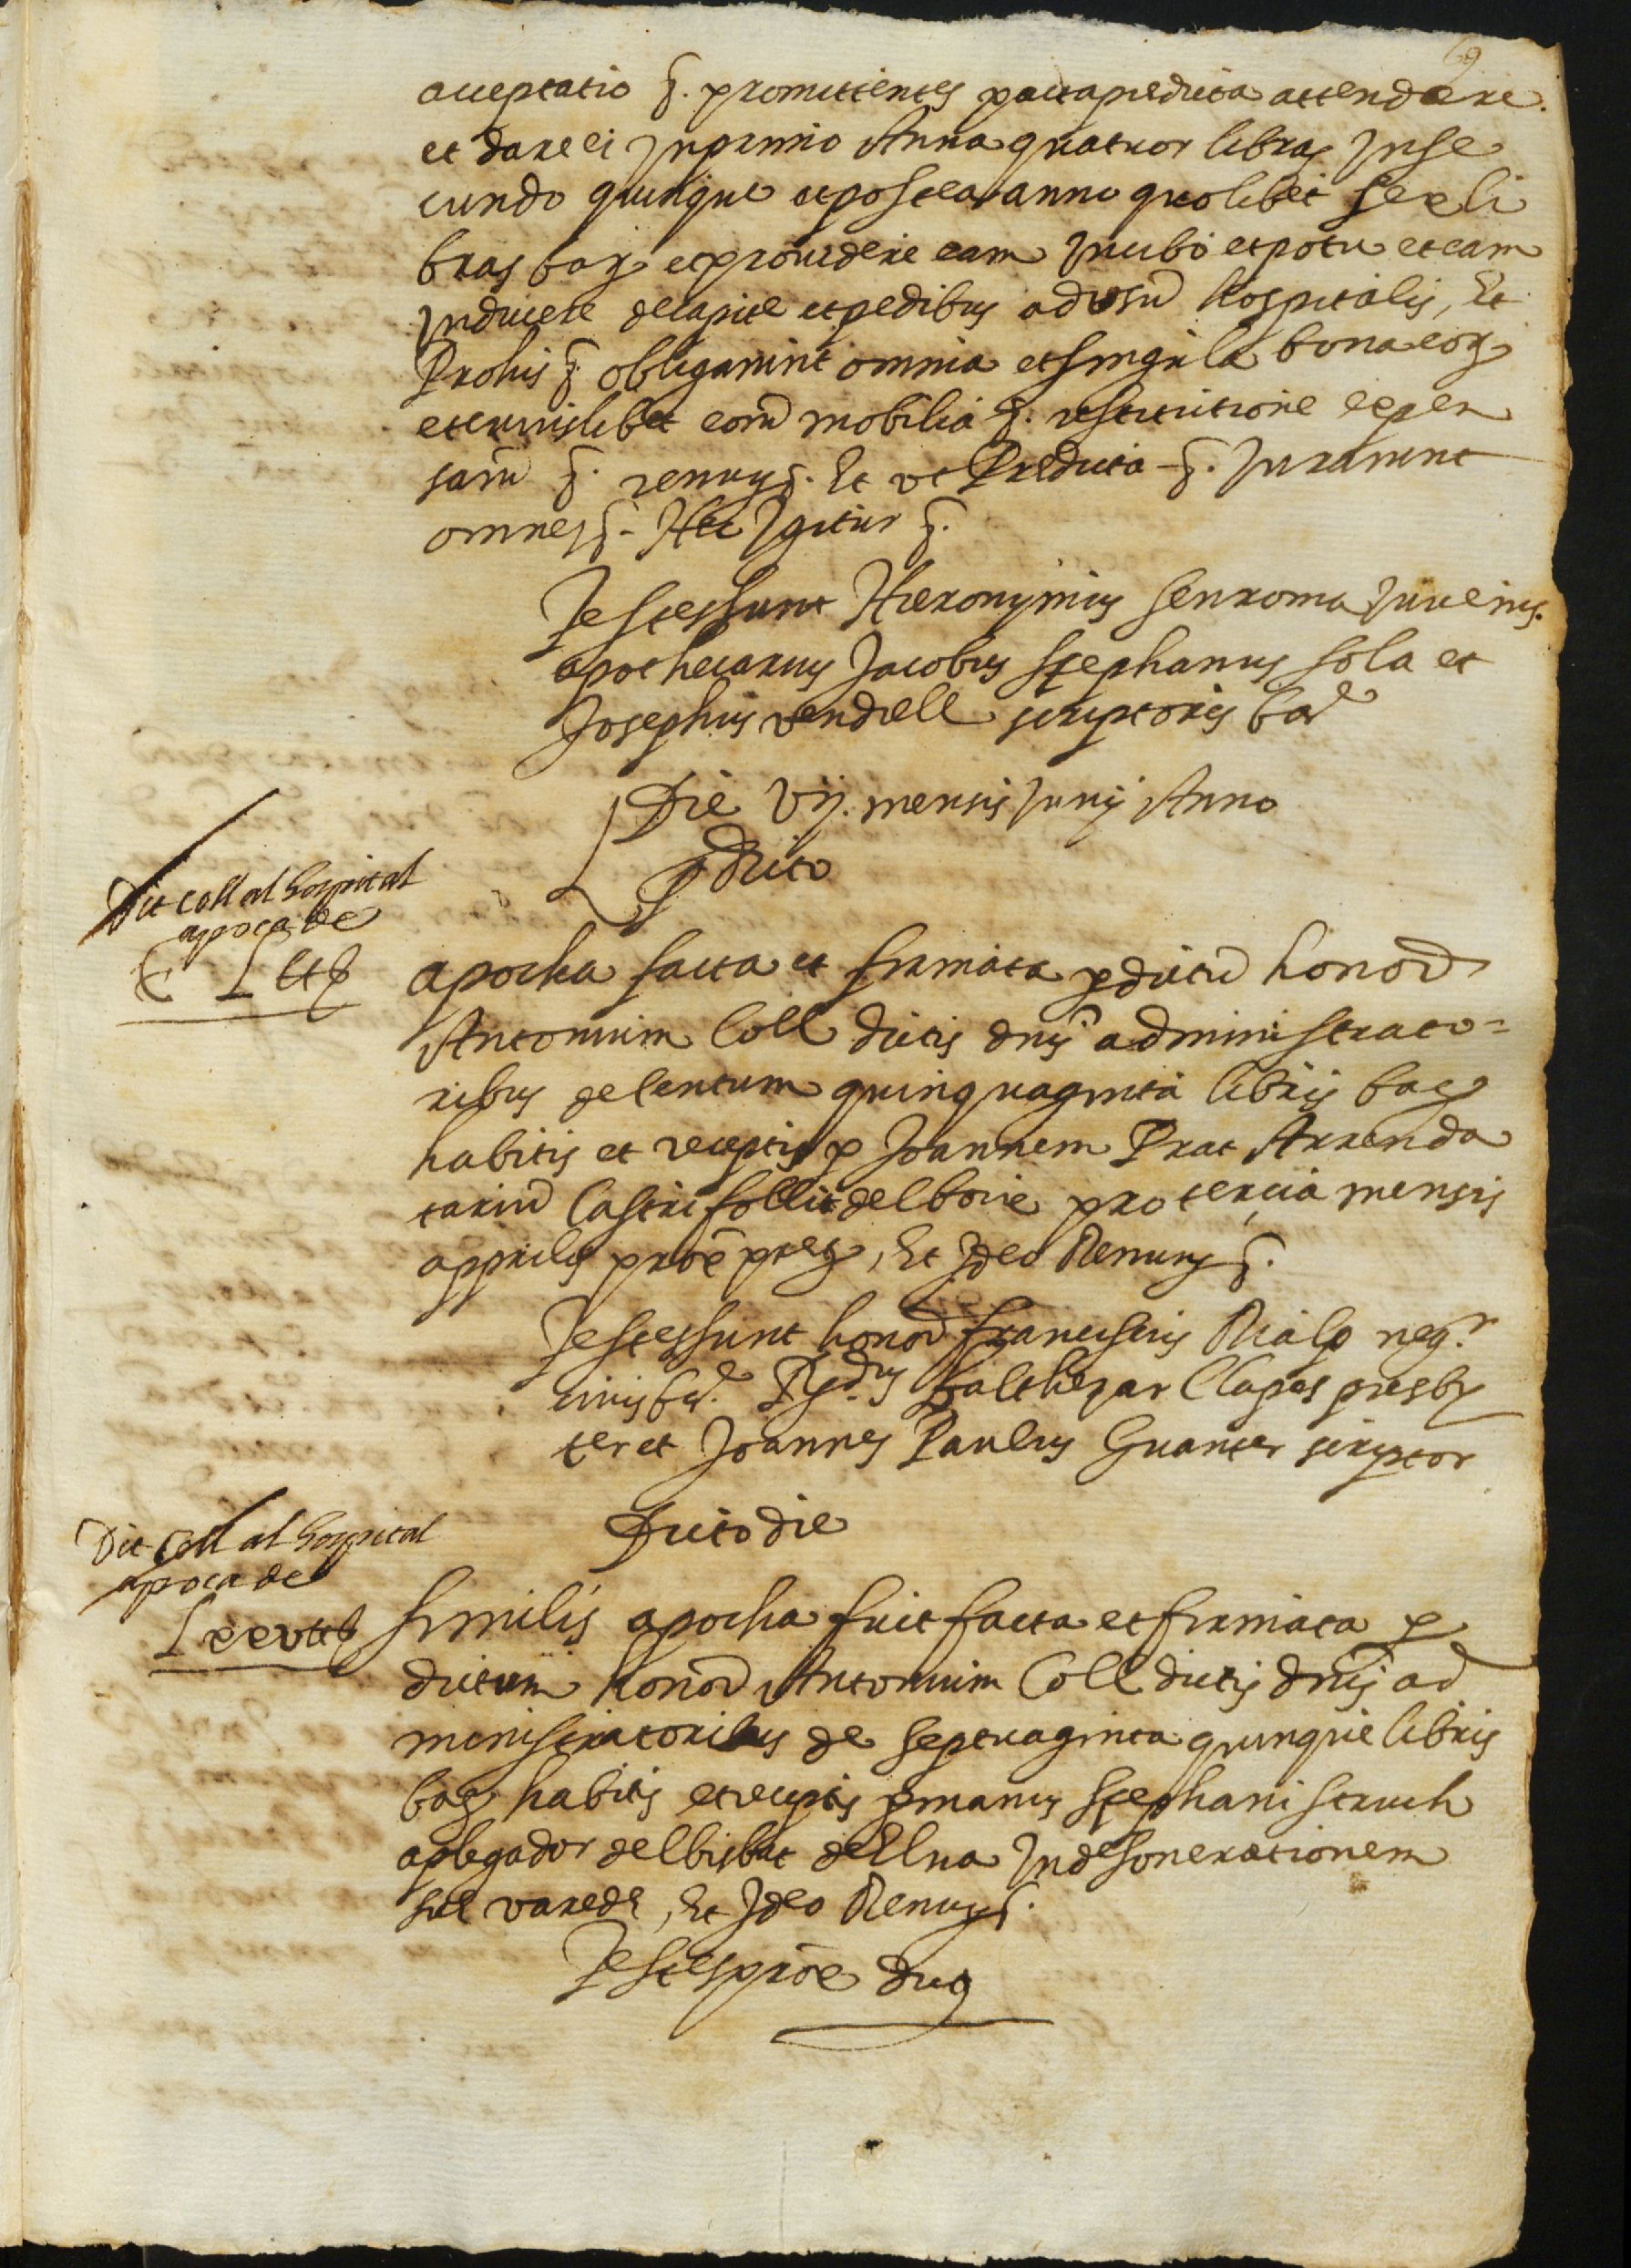 69
acceptatio &. promittentes pacta predicta attendere.
et dare ei In primo Anno quatuor libras In se
cundo quinque et postea anno quolibet sex li
bras bar. et prouidere eam In cibo et potu et eam
Inducere de capite et pedibus ad vsū hospitalis, Et
Pro his &. obligarunt omnia et singula bona eoꝝ
et cuiuslibet eorū mobilia &. restitutione expen
sarū &. renuns &. Et vt Predicta &. Jurarunt
omnes &. Hec Igitur &.
Testes sunt Hieronymus Senroma Juuenis.
apothecarius Jacobus Stephanus Sola et
Josephus vendrell scriptores bar.
Die vij. mensis Junij Anno
p̄dicto
Dit Coll al hospital
apoca de
C L ll℔
apocha facta et firmata p dictū honor.
Antonium Coll dictis dnis administrato=
ribus de centum quinquaginta libris bar.
habitis et receptis p Joannem Prat Arrenda
tariū Castri follit del boix pro tercia mensis
apprilis prox̄ preț, Et Ideo Renuns &.
Testes sunt honor. franciscus Rialp neg.r
ciuis bar. Rdus Balthezar Clapes presby
ter et Joannes Paulus Guanter scriptor
Dicto die
Dit Coll al hospital
apoca de
L xxv ll℔
Similis apocha fuit facta et firmata p
dictum honor. Antonium Coll dictis dnis ad
ministratoribus de septuaginta quinque libris
bar. habitis et receptis p manus Stephani struch
aplegador del bisbat de Elna In desonerationem
sue varede, Et Ideo Renuns &.
Testes prox̄e dicti